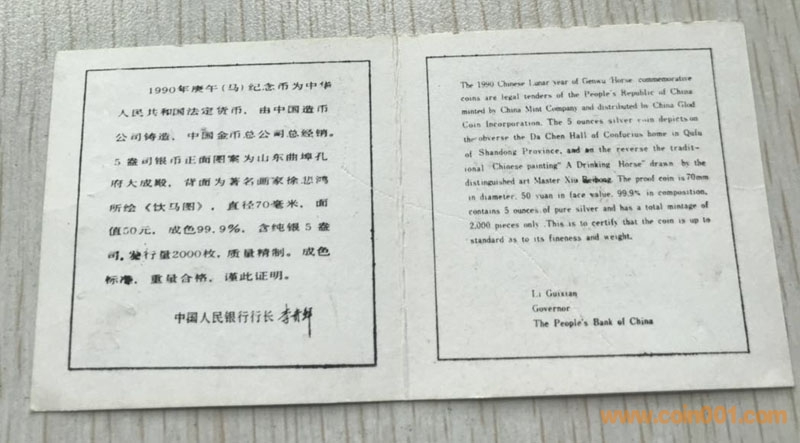 1990年庚午(马)纪念币为中华
人民共和国法定货币，由中国造币
公司铸造，中国金币总公司总经销。
5盎司银币正面图案为山东曲埠孔
府大成殿，背面为著名画家徐悲鸿
所绘《饮马图》，直径70毫米，面
值50元，成色99.9%，含纯银5盎
司，发行量2000枚，质量精制。成色
标准，重量合格，谨此证明。
中国人民银行行长 李贵鲜
The 1990 Chinese Lunar year of Genwu Horse commemorative
coins are legal tenders of the People's Republic of China
minted by China Mint Company and distributed by China Glod
Coin Incorporation. The 5 ounces silver coin depicts on
the obverse the Da Chen Hall of Confucius home in Qufu
of Shandong Province, and on the reverse the tradit-
ional "Chinese painting" A Drinking Horse" drawn by the
distinguished art Master Xiu Beihong. The proof coin is 70mm
in diameter, 50 yuan in face value, 99.9% in composition,
contains 5 ounces of pure silver and has a total mintage of
2,000 pieces only. This is to certify that the coin is up to
standard as to its fineness and weight.
Li Guixian
Governor
The People's Bank of China
www.coin001.com